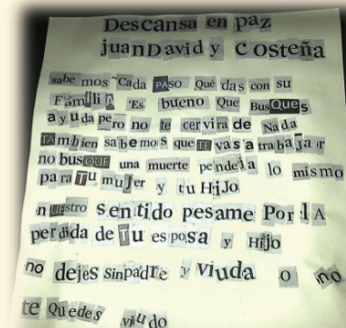 Descansa en paz
juan David y costeña
sabe mos Cada PASO Qué das con su
FAMiliA Es bueno Que BusQues
ayuda pero no te cervira de Nada
TAmbien sabemos que TE vas a trabajar
no busQUE una muerte pendeja lo mismo
para Tu mujer y tu HiJo
nuestro sentido pesame Por lA
perdida de Tu esposa y Hijo
no dejes sin padre y viuda o no
te Quedes viudo